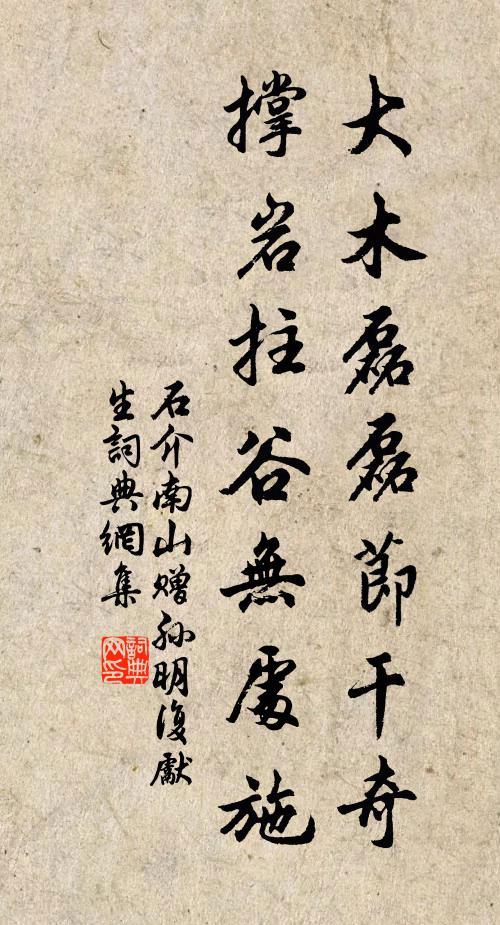 大木磊磊節干奇
撑岩拄谷無處施
石介南山赠孙明復獻
生詞典網集
詞典
网印